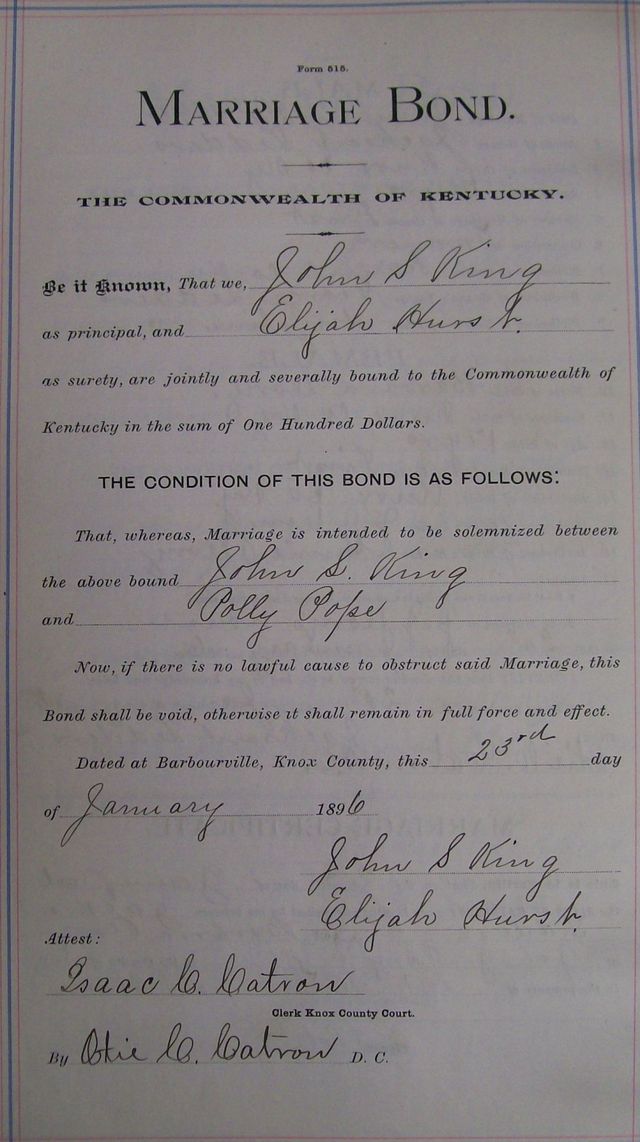 Form 515.
MARRIAGE BOND.
THE COMMONWEALTH OF KENTUCKY.
Be it Known, That we, John S King
as principal, and Elijah Hurst.
as surety, are jointly and severally bound to the Commonwealth of
Kentucky in the sum of One Hundred Dollars.
THE CONDITION OF THIS BOND IS AS FOLLOWS:
That, whereas, Marriage is intended to be solemnized between
the above bound John S. King
and Polly Pope
Now, if there is no lawful cause to obstruct said Marriage, this
Bond shall be void, otherwise it shall remain in full force and effect.
Dated at Barbourville, Knox County, this 23rd day
of January 1896
John S King
Elijah Hurst.
Attest:
Isaac C. Catron
Clerk Knox County Court.
By Otie C. Catron D. C.